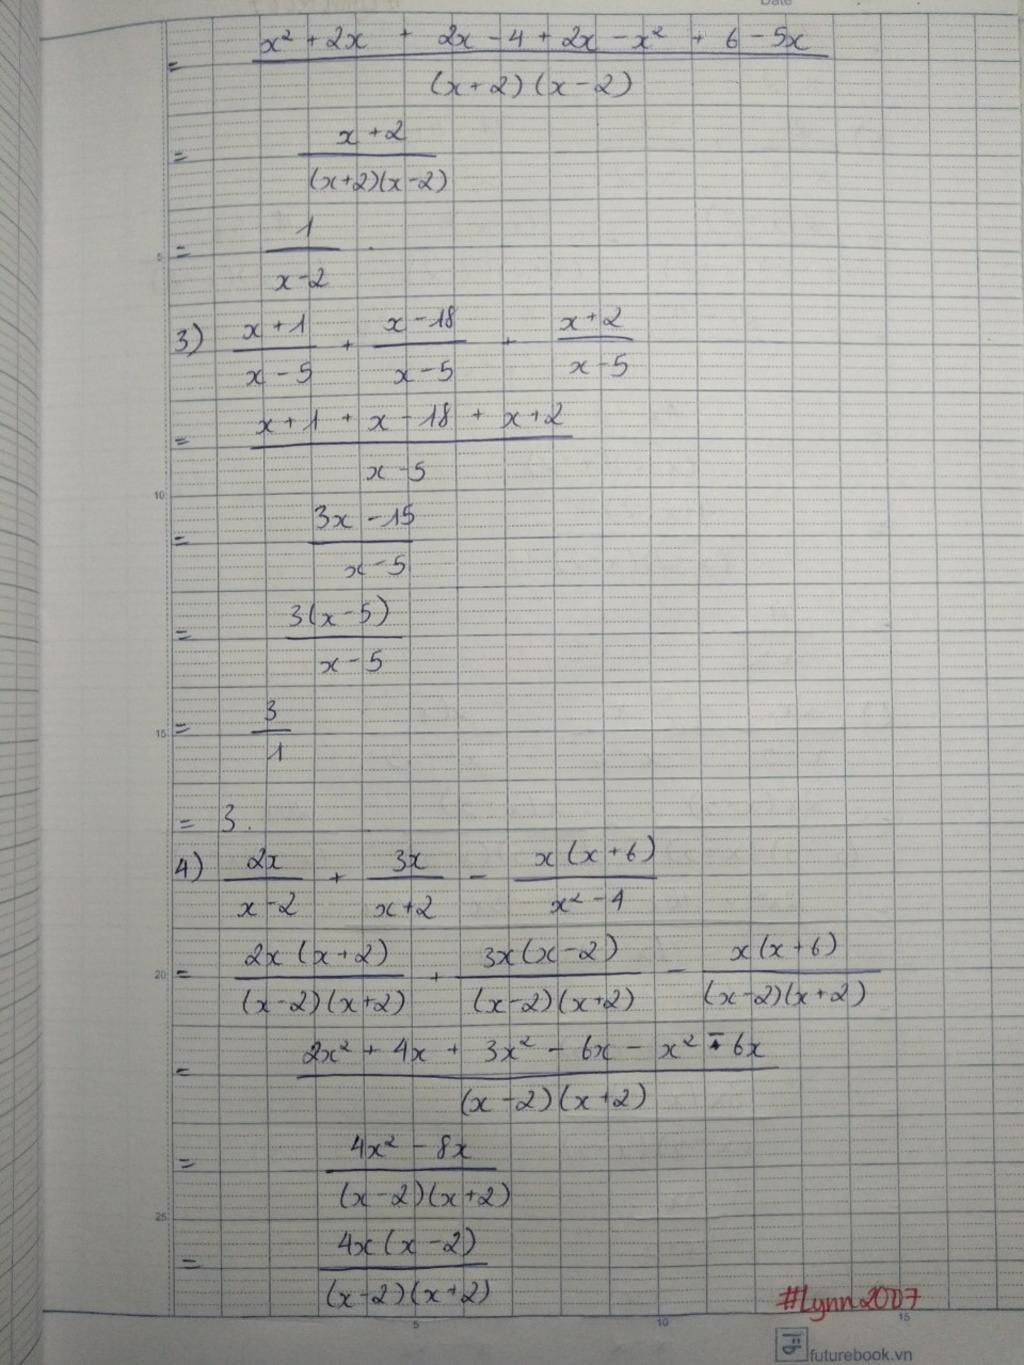 Date
= (x² + 2x + 2x - 4 + 2x - x² + 6 - 5x) / ((x+2)(x-2))
= (x+2) / ((x+2)(x-2))
= 1 / (x-2)
3) (x+1)/(x-5) + (x-18)/(x-5) + (x+2)/(x-5)
= (x+1 + x-18 + x+2) / (x-5)
= (3x-15) / (x-5)
= 3(x-5) / (x-5)
= 3/1
= 3.
4) 2x/(x-2) + 3x/(x+2) - x(x+6)/(x²-4)
= 2x(x+2)/((x-2)(x+2)) + 3x(x-2)/((x-2)(x+2)) - x(x+6)/((x-2)(x+2))
= (2x² + 4x + 3x² - 6x - x² - 6x) / ((x-2)(x+2))
= (4x² - 8x) / ((x-2)(x+2))
= 4x(x-2) / ((x-2)(x+2))
#Lynn2007
5 10 15
futurebook.vn